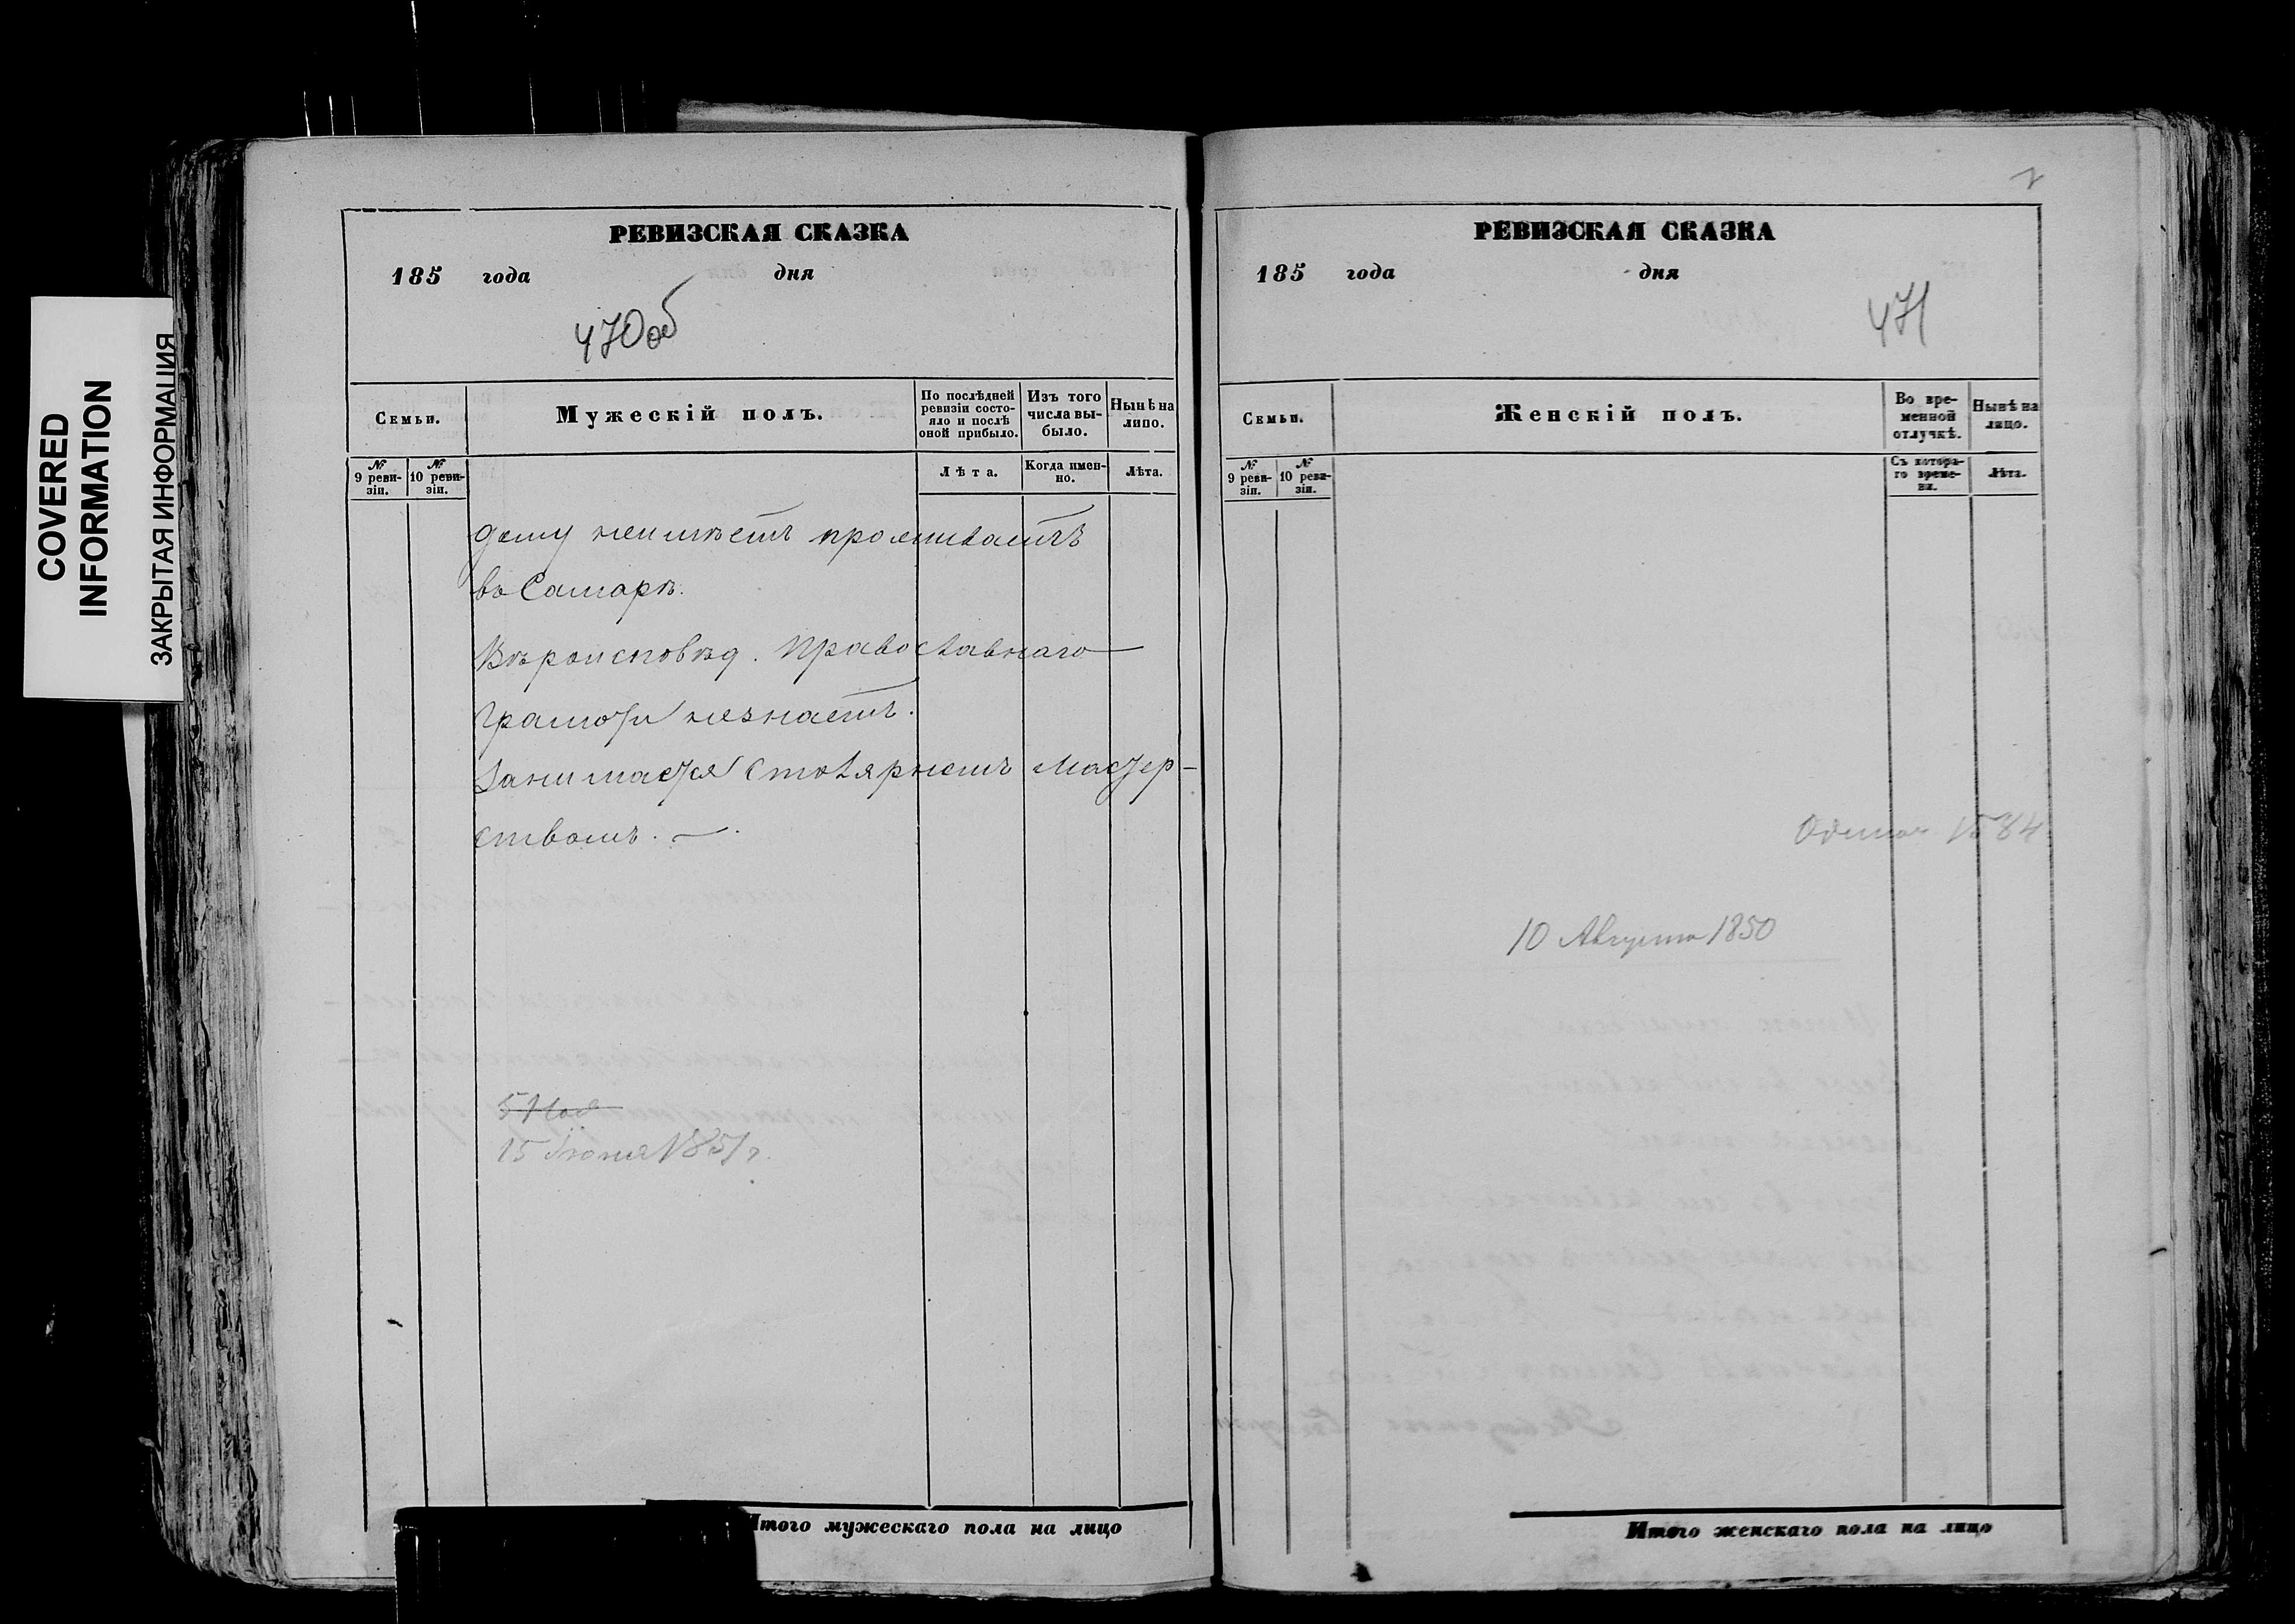 COVERED
INFORMATION
ЗАКРЫТАЯ ИНФОРМАЦИЯ
РЕВИЗСКАЯ СКАЗКА
185 года дня
470об
Семьи.
Мужескій полъ.
По послѣдней ревизіи состояло и послѣ оной прибыло.
Изъ того числа выбыло.
Нынѣ на лицо.
№ 9 ревизіи.
№ 10 ревизіи.
Лѣта.
Когда именно.
Лѣта.
дому неимѣетъ проживаетъ
въ Самарѣ.
Вѣроисповѣд. Православнаго
Грамоти незнаетъ.
Занимается Столярнымъ Мастер-
ствомъ.
15 Іюня 1851 г.
Итого мужескаго пола на лицо
РЕВИЗСКАЯ СКАЗКА
185 года дня
471
Семьи.
Женскій полъ.
Во временной отлучкѣ.
Нынѣ на лицо.
№ 9 ревизіи.
№ 10 ревизіи.
Съ котораго времени.
Лѣта.
10 Августа 1850
Итого женскаго пола на лицо